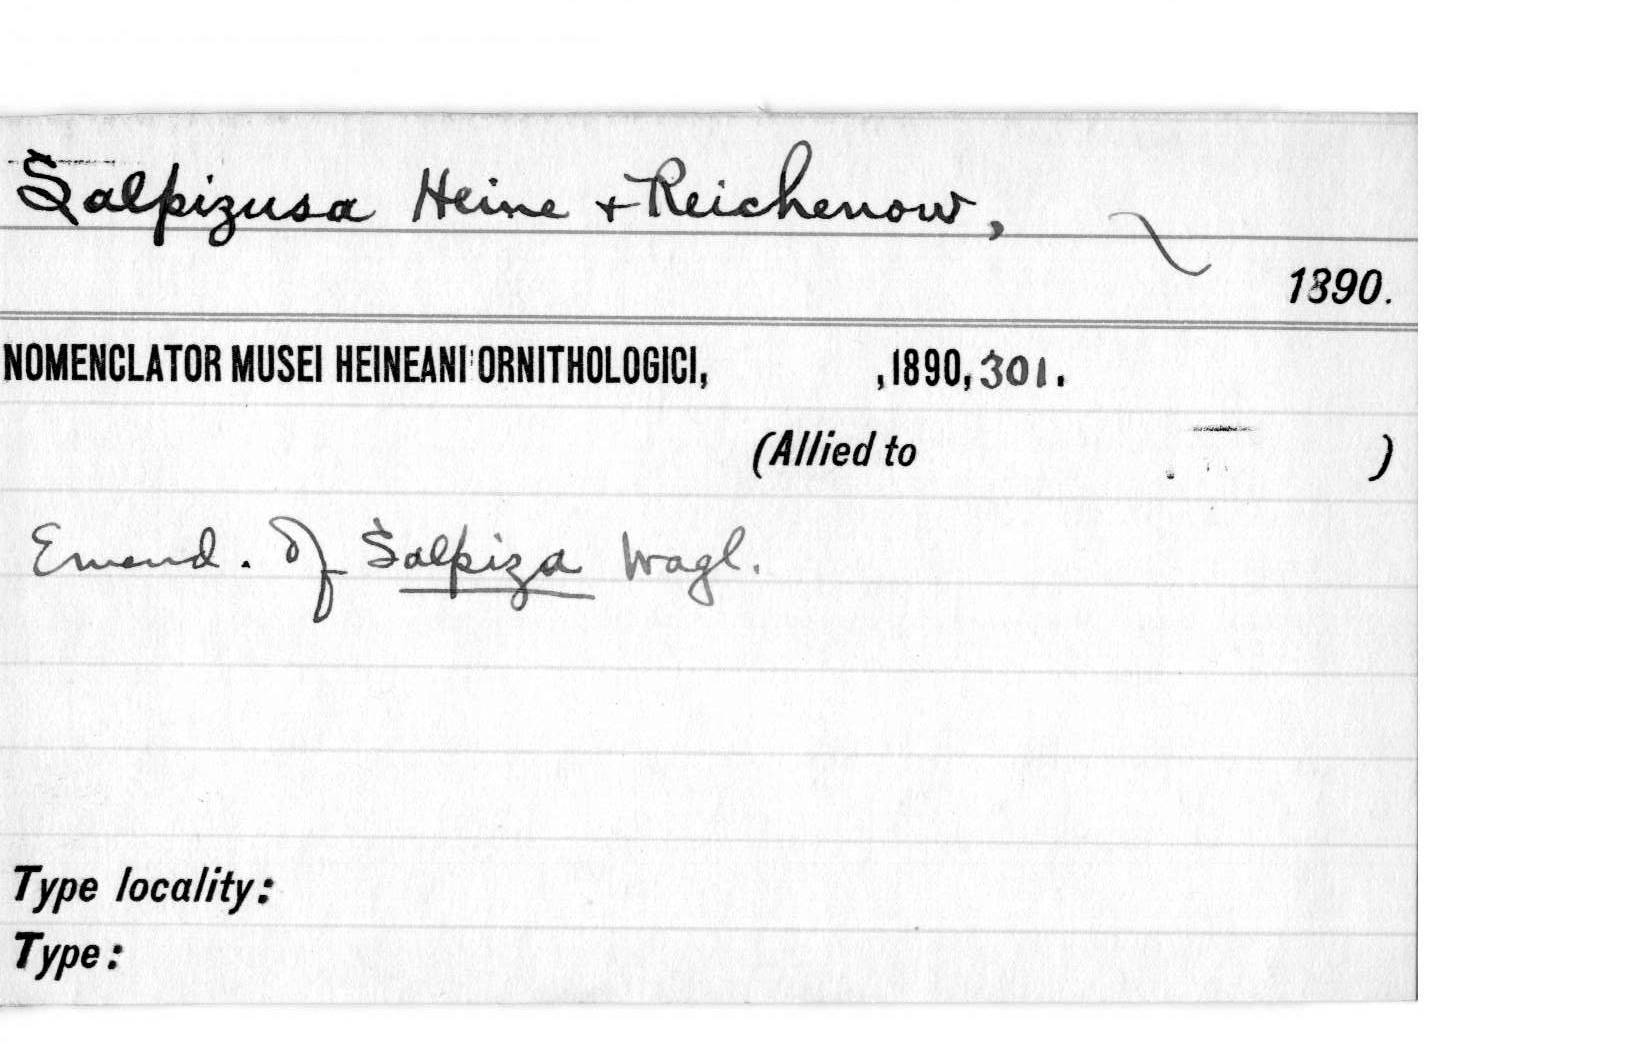 Salpizusa Heine + Reichenow,
1890.
NOMENCLATOR MUSEI HEINEANI ORNITHOLOGICI, ,1890, 301.
(Allied to )
Emend. Of Salpiza Wagl.
Type locality:
Type: